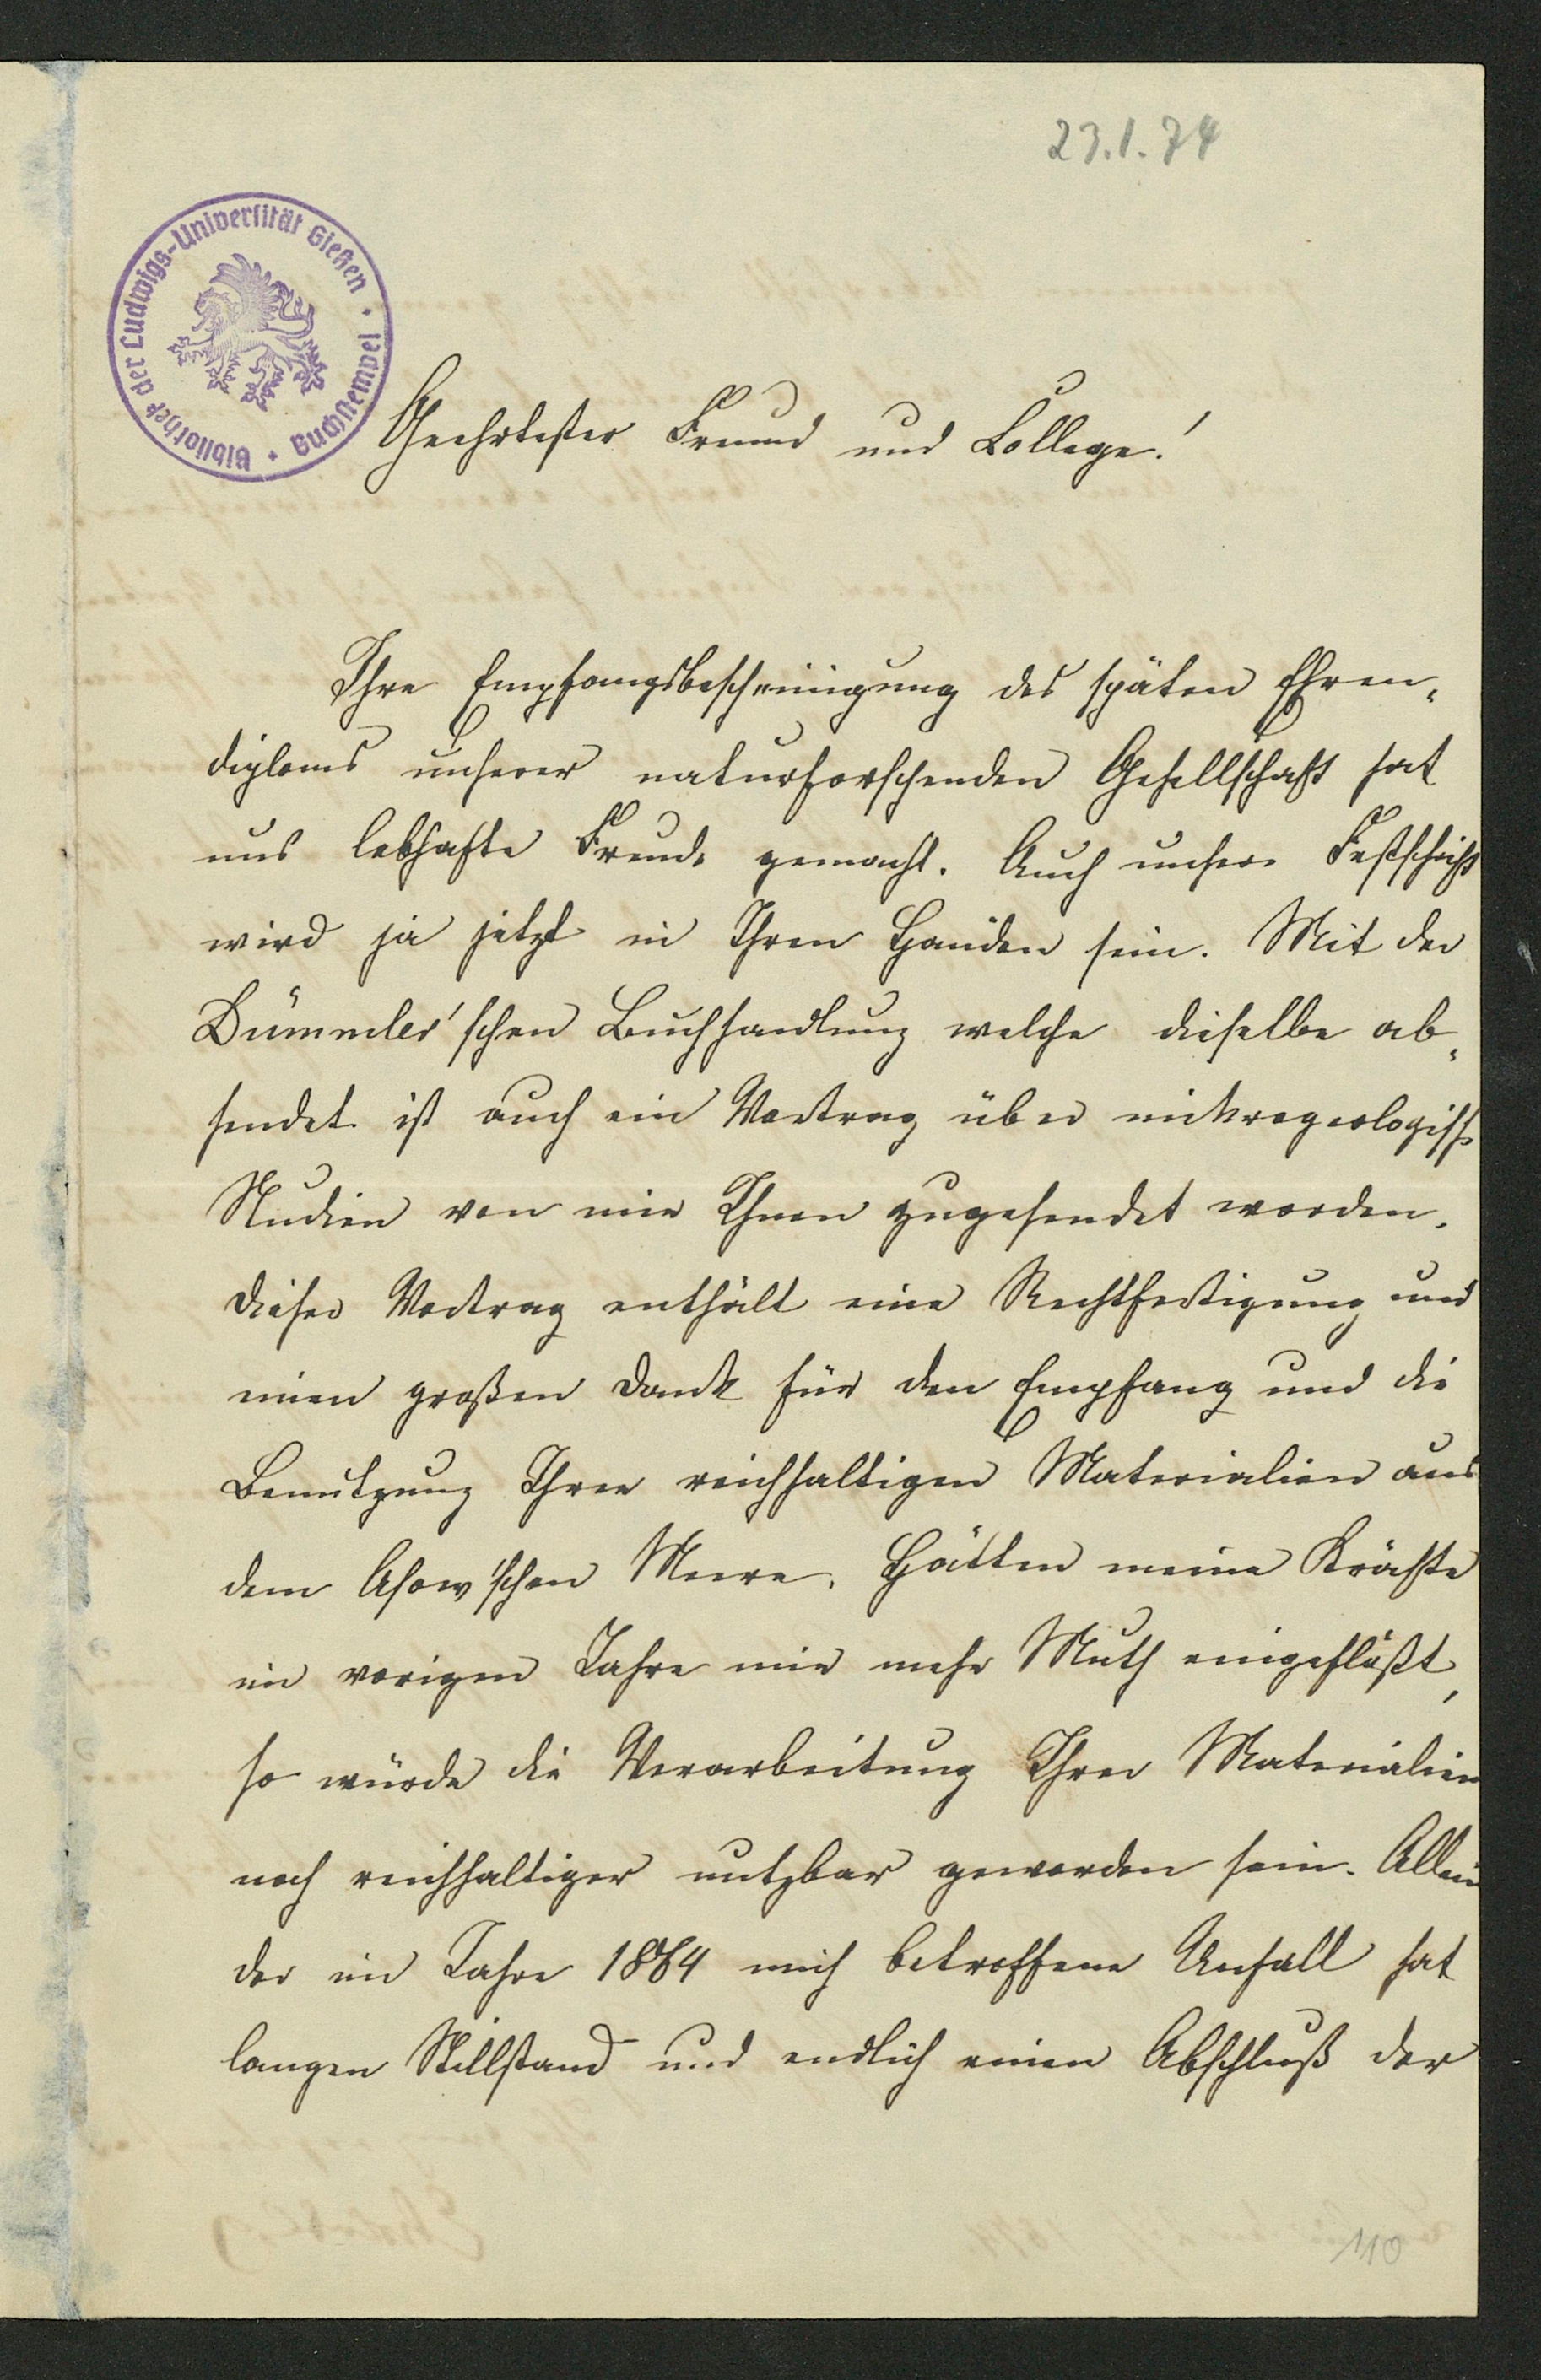 23.1.74
Bibliothek der Ludwigs-Universität Gießen · Buchstempel ·
Geehrtester Freund und College!
Ihre Empfangsbescheinigung des späten Ehren-
diploms unserer naturforschenden Gesellschaft hat
uns lebhafte Freude gemacht. Auch unsere Festschrift
wird ja jetzt in Ihren Händen sein. Mit der
Dümmler'schen Buchhandlung welche dieselbe ab-
sendet ist auch ein Vortrag über mikrogeologische
Studien von mir Ihnen zugesendet worden.
Dieser Vortrag enthält eine Rechtfertigung und
einen großen Dank für den Empfang und die
Benutzung Ihrer reichhaltigen Materialien aus
dem Asow'schen Meere. Hätten meine Kräfte
im vorigen Jahre mir mehr Muth eingeflößt,
so würde die Verarbeitung Ihrer Materialien
noch reichhaltiger nutzbar geworden sein. Allein
der im Jahre 1864 mich betroffene Unfall hat
langen Stillstand und endlich einen Abschluß der
110